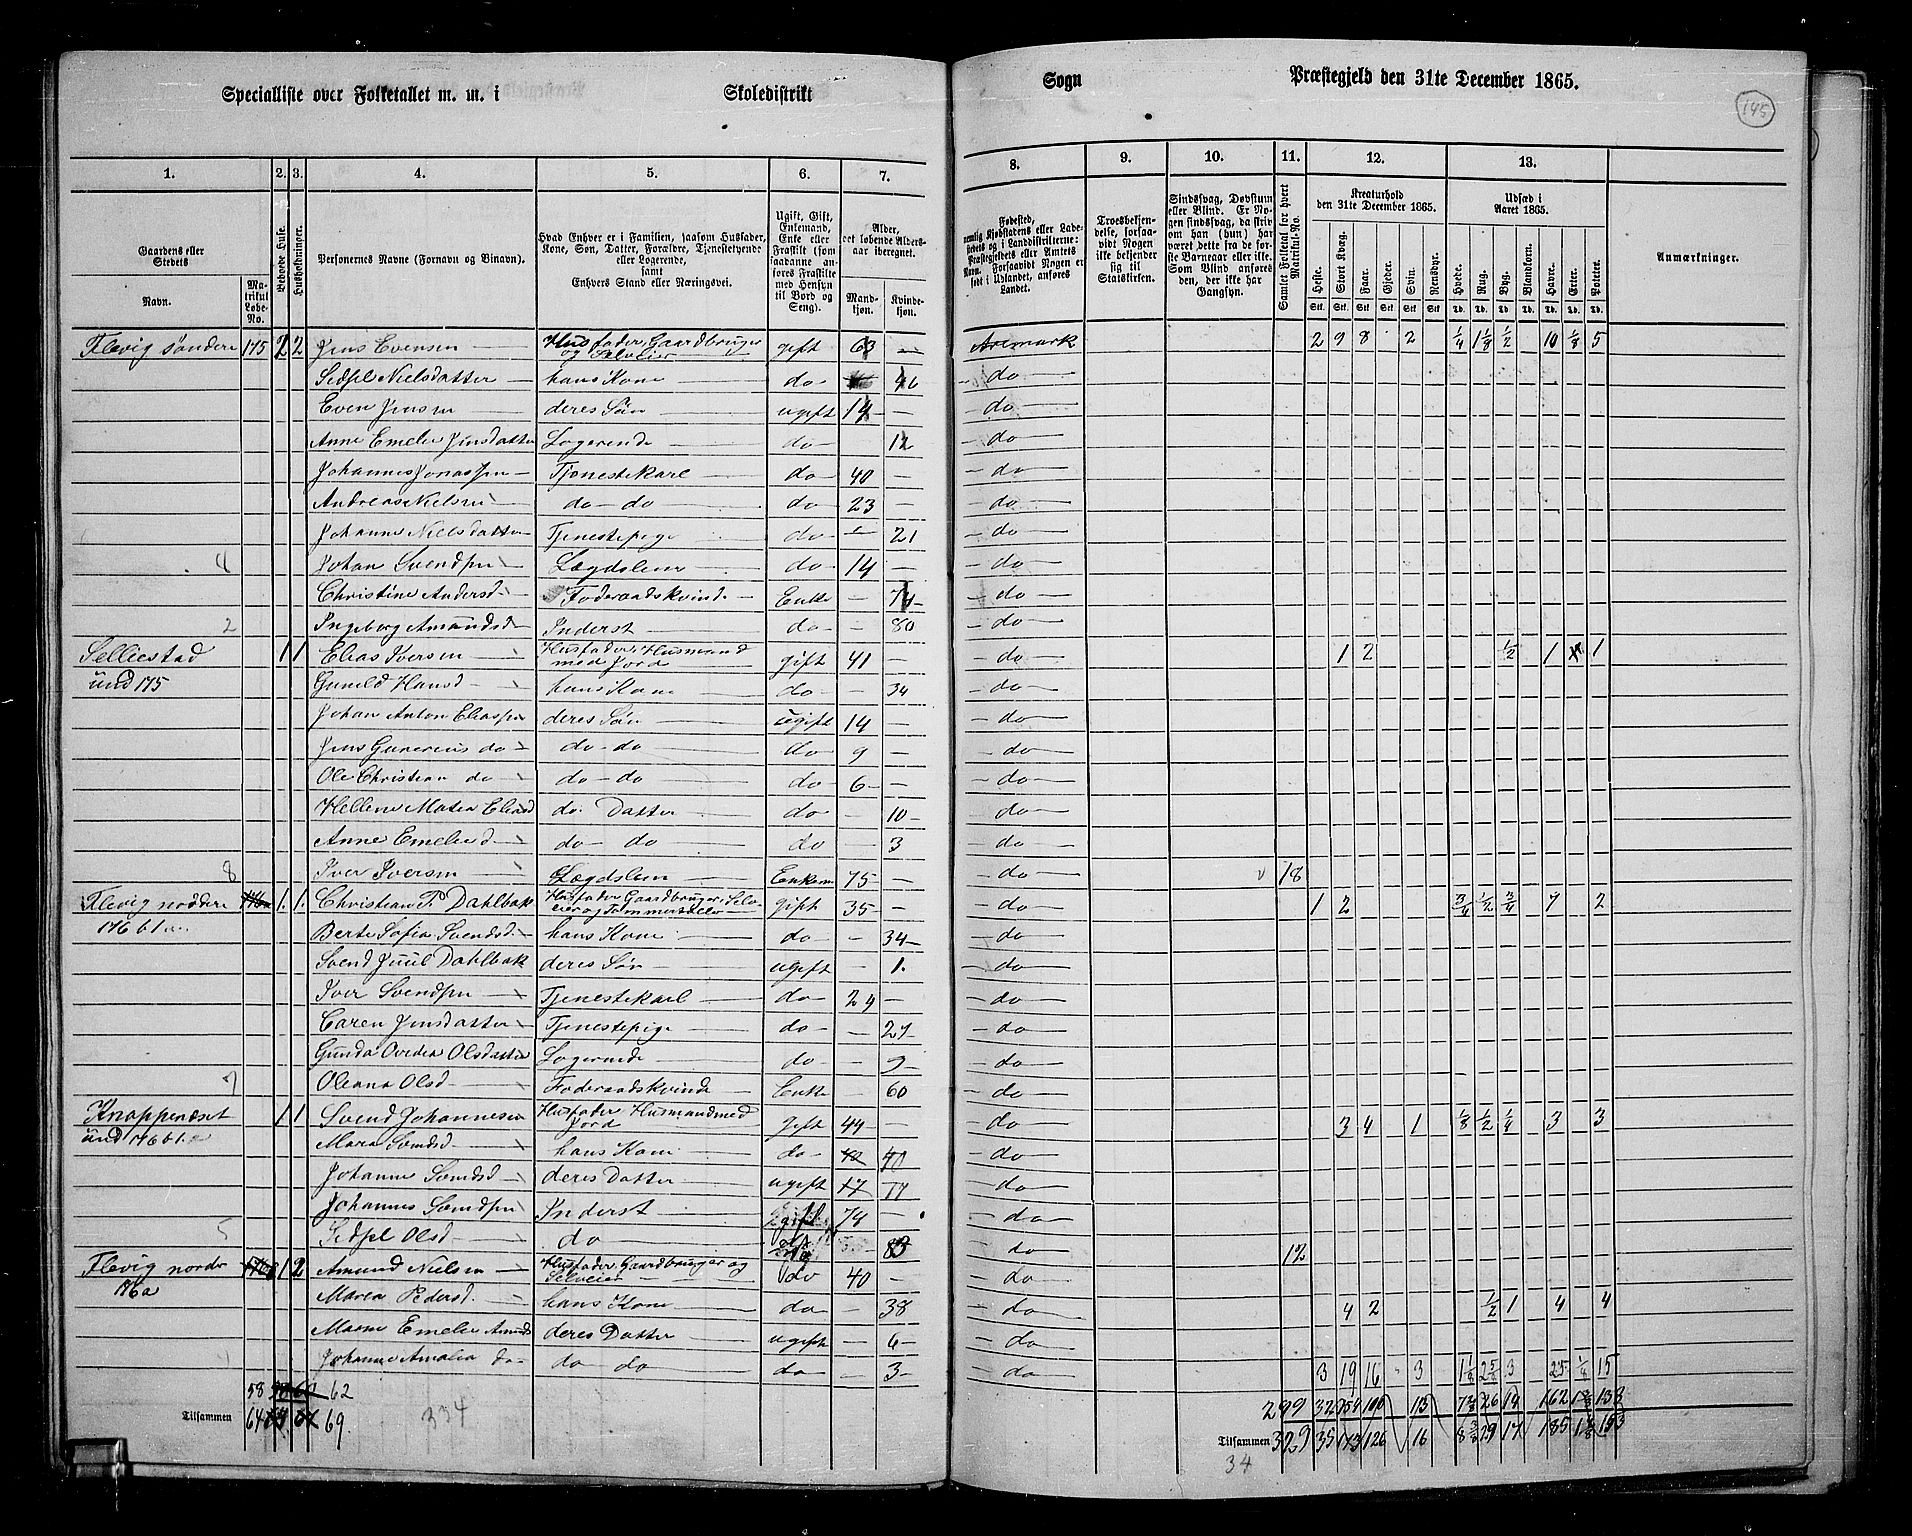 Specialliste over Folketallet m. m. i Skoledistrikt Sogn Præstegjeld den 31te December 1865.
145
1. 2. 3. 4. 5. 6. 7. 8. 9. 10. 11. 12. 13.
Gaardens eller Stedets
Navn.
Matrikul Løbe-No.
Beboede Huse.
Husholdninger.
Personernes Navne (Fornavn og Binavn).
Hvad Enhver er i Familien, saasom Husfader, Kone, Søn, Datter, Forældre, Tjenestetyende eller Logerende, samt Enhvers Stand eller Næringsvei.
Ugift, Gift, Enkemand, Enke eller Fraskilt (som saadanne anføres Fraskilte med Hensyn til Bord og Seng).
Alder, det løbende Aldersaar iberegnet.
Mandkjøn. Kvindekjøn.
Fødested, nemlig Kjøbstadens eller Ladestedets og i Landdistrikterne: Præstegjeldets eller Amtets Navn. Forsaavidt Nogen er født i Udlandet, anføres Landet.
Troesbekjendelse, forsaavidt Nogen ikke bekjender sig til Statskirken.
Sindssvag, Døvstum eller Blind. Er Nogen sindssvag, da skrives om han (hun) har været dette fra de første Barneaar eller ikke. Som Blind anføres den, der ikke har Gangsyn.
Samlet Folketal for hvert Matrikul-No.
Kreaturhold den 31te December 1865.
Heste. Stort Kvæg. Faar. Gjeder. Svin. Rensdyr.
Udsæd i Aaret 1865.
Hvede. Rug. Byg. Blandkorn. Havre. Erter. Poteter.
Anmærkninger.
Flevig søndere 175 2 2 Jens Evensen Husfader, Gaardbruger og Selveier gift 63 — Aremark 2 9 8 2 1/4 1 1/8 1/2 10 1/8 5
Sedsel Nielsdatter hans Kone do — do
Even Jensen deres Søn ugift 14 — do
Anne Emelie Jensdatter Logerende do 12 do
Johannes Jonassen Tjenestekarl do 40 — do
Andreas Nielsen do do do 23 — do
Johanne Nielsdatter Tjenestepige do — 21 do
4 Johan Svendsen Lægdslem do 14 — do
Christine Andersd Foderaadskvinde Enke — do
2 Ingeborg Amundsd Inderst do — 80 do
Selliestad 1 1 Elias Iversen Husfader, Husmand med Jord gift 41 — do 1 2 1/2 1 1
und 175 Gunild Hansd hans Kone do — 34 do
Johan Anton Eliassen deres Søn ugift 14 — do
Jens Gunerius do do do do 9 — do
Ole Christian do do do do 6 — do
Hellene Matea Eliasd do Datter do — 10 do
Anne Emelie d do do do — 3 do
8 Iver Iversen Lægdslem Enkem 75 — do 18
Flevig nordere 1 1 Christian P Dahlbak Husfader, Gaardbruger, Selveier og Tømmersælv gift 35 — do 1 2 3/4 1/2 3/4 7 2
176 b1 Berte Sofia Svendsd. hans Kone do — 34 do
Svend Juul Dahlbak deres Søn ugift — 1 do
Iver Svendsen Tjenestekarl do 24 — do
Caren Jensdatter Tjenestepige do — 27 do
Gunda Ovedia Olsdatter Logerende do — 9 do
7 Oleana Olsd Foderaadskvinde Enke 60 do
Knappenæset 1 1 Svend Johannesen Husfader, Husmand med Jord gift 44 — do 3 4 1 1/8 1/2 1/4 3 3
und 176 b1 Maria Svendsd hans Kone do 40 do
Johanne Svendsd deres Datter ugift 17 do
Johannes Svendsen Inderst 74 — do
5 Sedsel Olsd do 83 do 12
Flevig nordre 1 2 Amund Nielsen Husfader, Gaardbruger og Selveier do 40 — do
176a Maren Pedersd. hans Kone do — 38 do 4 2 1/2 1 4 4
Maren Emelie Amunds deres Datter ugift — 6 do
4 Johanne Amalia do do do do — 3 do 3 19 16 3 1 1/8 2 5/8 3 25 1/4 15
58 62 299 32 154 110 13 7 2/8 26 14 162 1 3/8 138
Tilsammen 64 69 334 Tilsammen 329 35 173 126 16 8 3/8 29 17 185 1 5/8 153
34